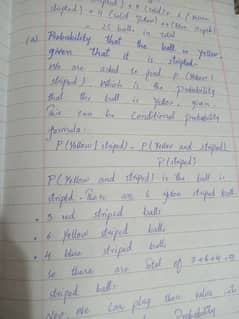 striped) + 8 (solid) + 6 (
striped) + 4 (solid + (blue striped)
= 25 balls in total
(a) Probability that the ball is yellow,
given that it is striped-
We are asked to find P (Yellow |
striped). Which is the probability
that the ball is yellow, given
can be conditional probability
formula:
P(Yellow | striped) = P(Yellow and striped)
P(striped)
P(Yellow and striped) is the ball is
striped. There are 6 striped ball.
• 3 red striped ball
• 6 Yellow striped ball
• 4 blue striped ball
So there are total of 3+6+4=
striped ball.
Now, We can plug these value into
Probability